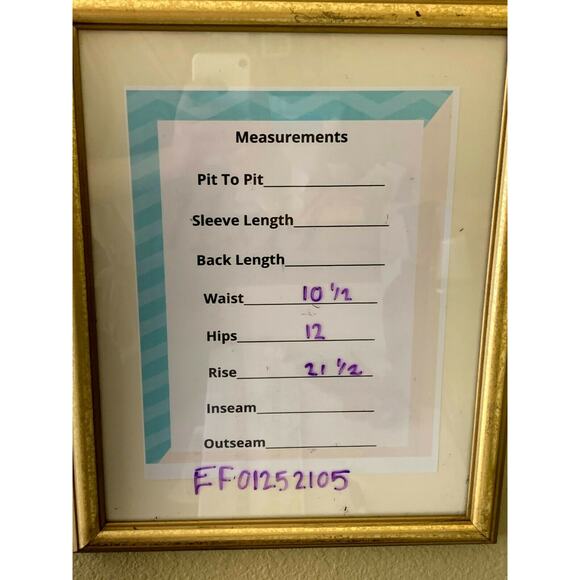 Measurements
Pit To Pit
Sleeve Length
Back Length
Waist 10 1/2
Hips 12
Rise 21 1/2
Inseam
Outseam
EF01252105